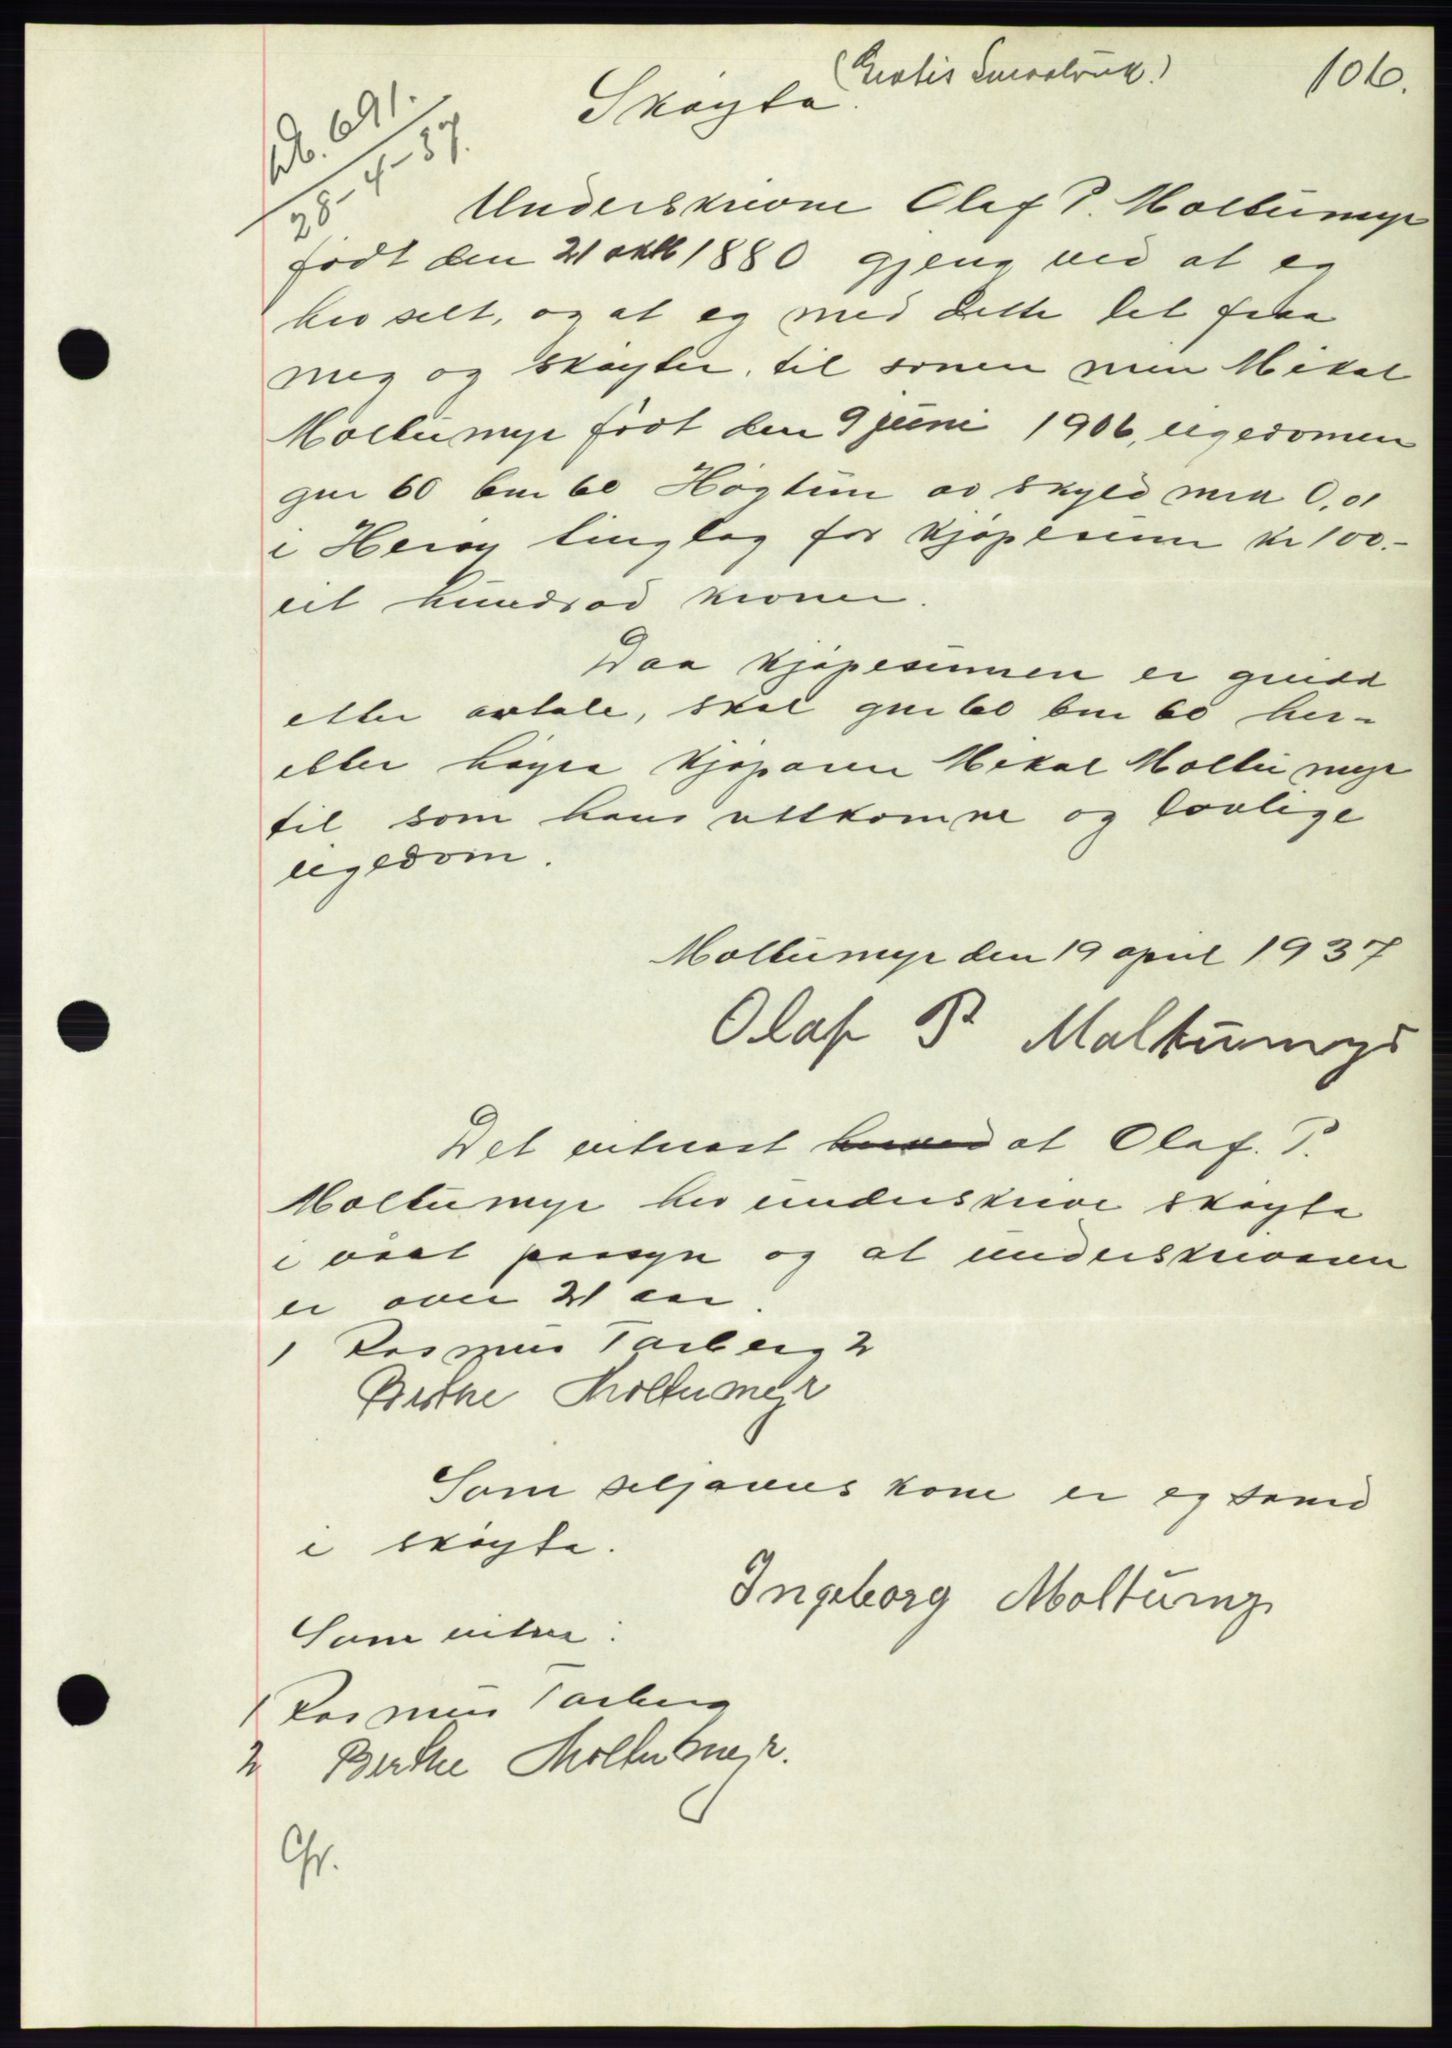 106.
(Gratis Smaabruk.)
Skøyte.
Db. 691.
28-4-37.
Underskrivne Olaf P. Moltumyr
født den 21 okt 1880 gjeng ved at eg
hev selt, og at eg med dette let fraa
meg og skøyter til sonen min Mikal
Moltumyr født den 9 juni 1906, eigedomen
gnr 60 bnr 60 Høgtun av skyld mrk 0,01
i Herøy tinglag for kjøpesum kr 100.-
eit hundrad kroner.
Daa kjøpesummen er greidd
etter avtale, skal gnr 60 bnr 60 her-
etter høyra kjøparen Mikal Moltumyr
til som hans utkomne og lovlige
eigedom.
Moltumyr den 19 april 1937
Olaf P Moltumyr
Det vitnast herved at Olaf. P.
Moltumyr hev underskrive skøyte
i vaart paasyn og at underskrivaren
er over 21 aar.
1 Rasmus Tarberg 2
Berthe Moltumyr
Som seljarens kone er eg samd
i skøyte.
Ingeborg Moltumyr
Som vitne:
1 Rasmus Tarberg
2 Berthe Moltumyr.